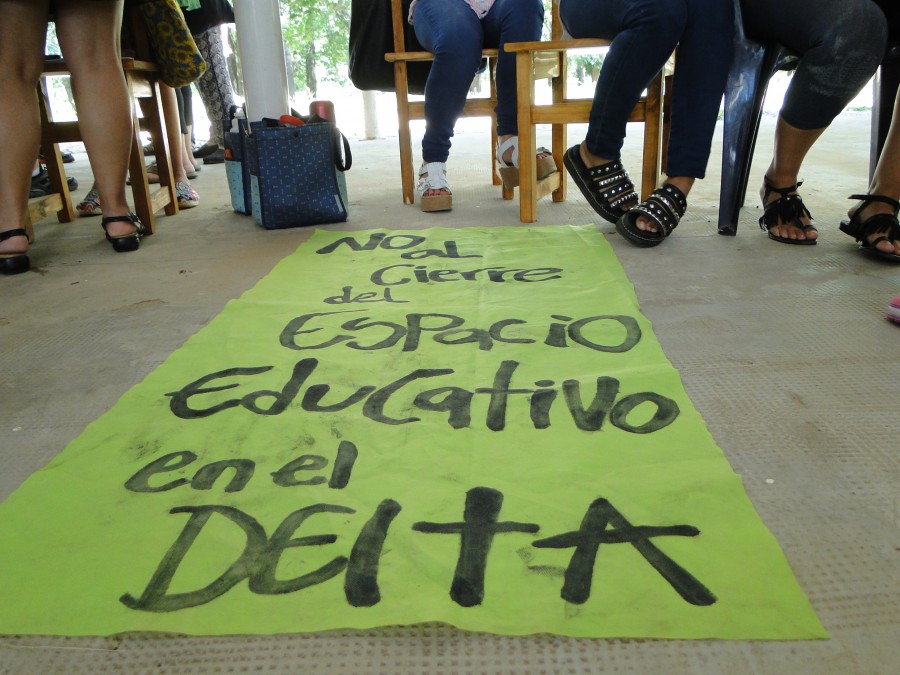 No
al
Cierre
del
Espacio
Educativo
en el
DElTA